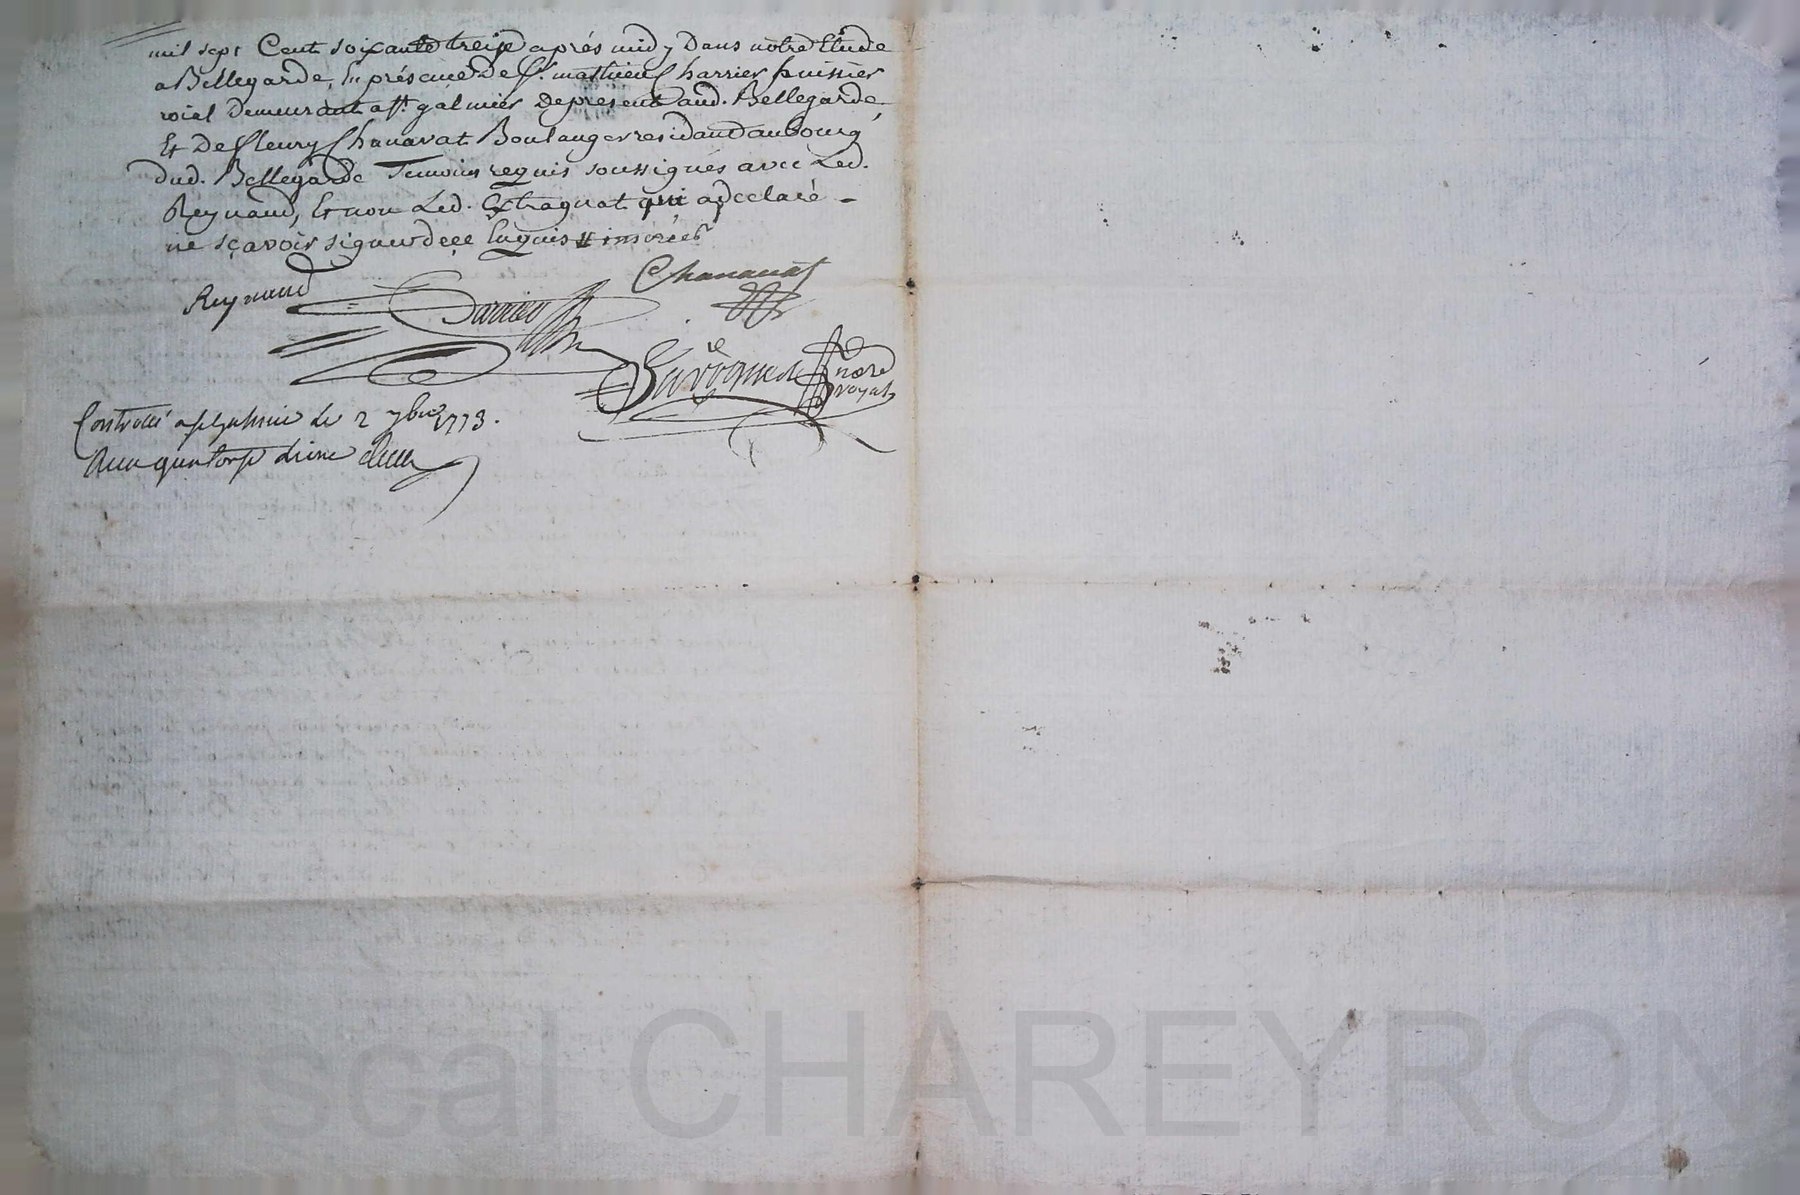 mil sept Cent soixante treize après midy Dans nôtre Etude
a Bellegarde, En présence de Sr. mathieu Charrier huissier
roïal Demeurant a St. galmier De présent aud. Bellegarde
Et De fleury Chanavat Boulanger residant au bourg
dud. Bellegarde Temoins requis soussignés avec Led.
Reynaud, Et non Led. qui a declaré
ne sçavoir signer de ce Enquis
Reynaud
Charrier
Chanavat
nore
royal
Controllé a St galmier Le 2 7bre 1773.
Reçu quatorze
ascal CHAREYRON